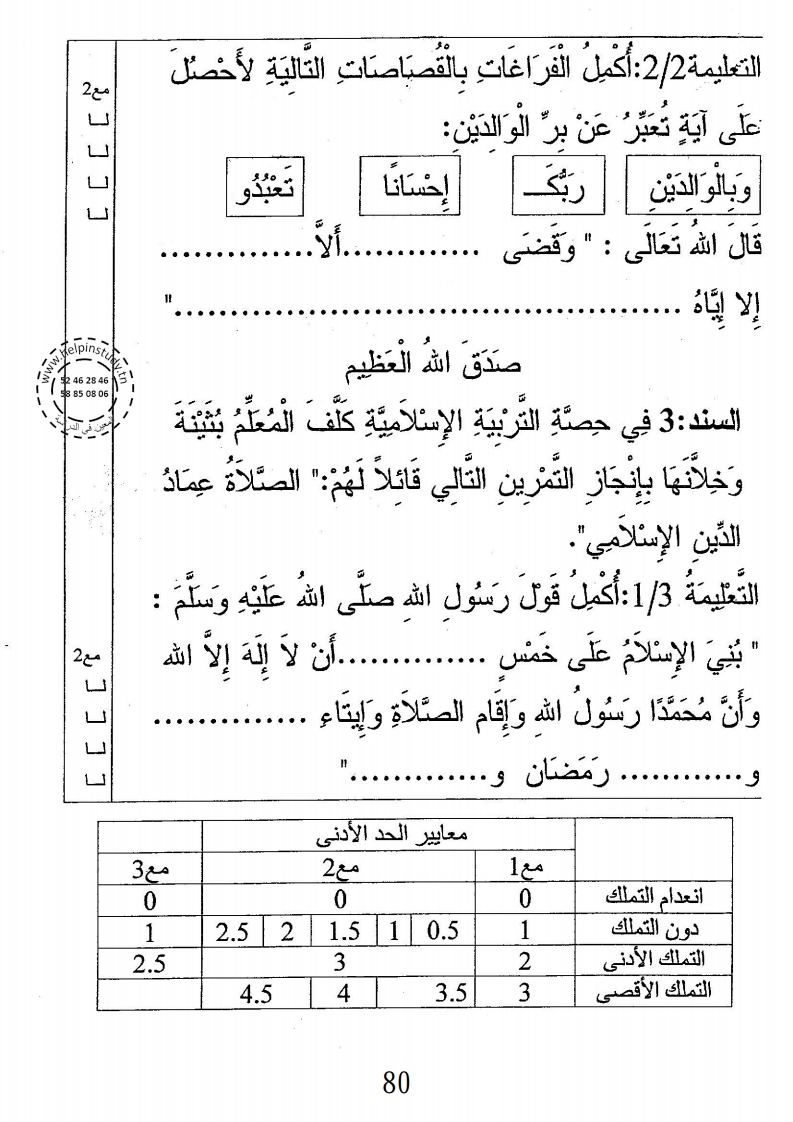 التعليمة2/2:أُكْمِلُ الْفَرَاغَاتِ بِالْقُصَاصَاتِ التَّالِيَةِ لأَحْصُلَ
عَلَى آيَةٍ تُعَبِّرُ عَنْ بِرِّ الْوَالِدَيْنِ:
مع2
وَبِالْوَالِدَيْنِ رَبُّكَـ إِحْسَانًا تَعْبُدُو
قَالَ اللهُ تَعَالَى : " وَقَضَى .............أَلاَّ..............
إِلا إِيَّاهُ ............................................."
صَدَقَ اللهُ الْعَظِيم
www.helpinstudy.tn
52 46 28 46
58 85 08 06
السند:3 فِي حِصَّةِ التَّرْبِيَةِ الإِسْلاَمِيَّةِ كَلَّفَ الْمُعَلِّمُ بُثَيْنَةَ
وَخِلاَّنَهَا بِإِنْجَازِ التَّمْرِينِ التَّالِي قَائِلاً لَهُمْ:" الصَّلاَةُ عِمَادُ
الدِّينِ الإِسْلاَمِي".
التَّعْلِيمَةُ 1/3:أُكْمِلُ قَوْلَ رَسُولِ اللهِ صَلَّى اللهُ عَلَيْهِ وَسَلَّمَ :
" بُنِيَ الإِسْلاَمُ عَلَى خَمْسٍ ..............أَنْ لاَ إِلَهَ إِلاَّ الله
مع2
وَأَنَّ مُحَمَّدًا رَسُولُ اللهِ وَإِقَام الصَّلاَةِ وَإِيتَاءِ ..............
و............ رَمَضَان و............."
معايير الحد الأدنى
مع1 مع2 مع3
انعدام التملك 0 0 0
دون التملك 1 0.5 1 1.5 2 2.5 1
التملك الأدنى 2 3 2.5
التملك الأقصى 3 3.5 4 4.5
80